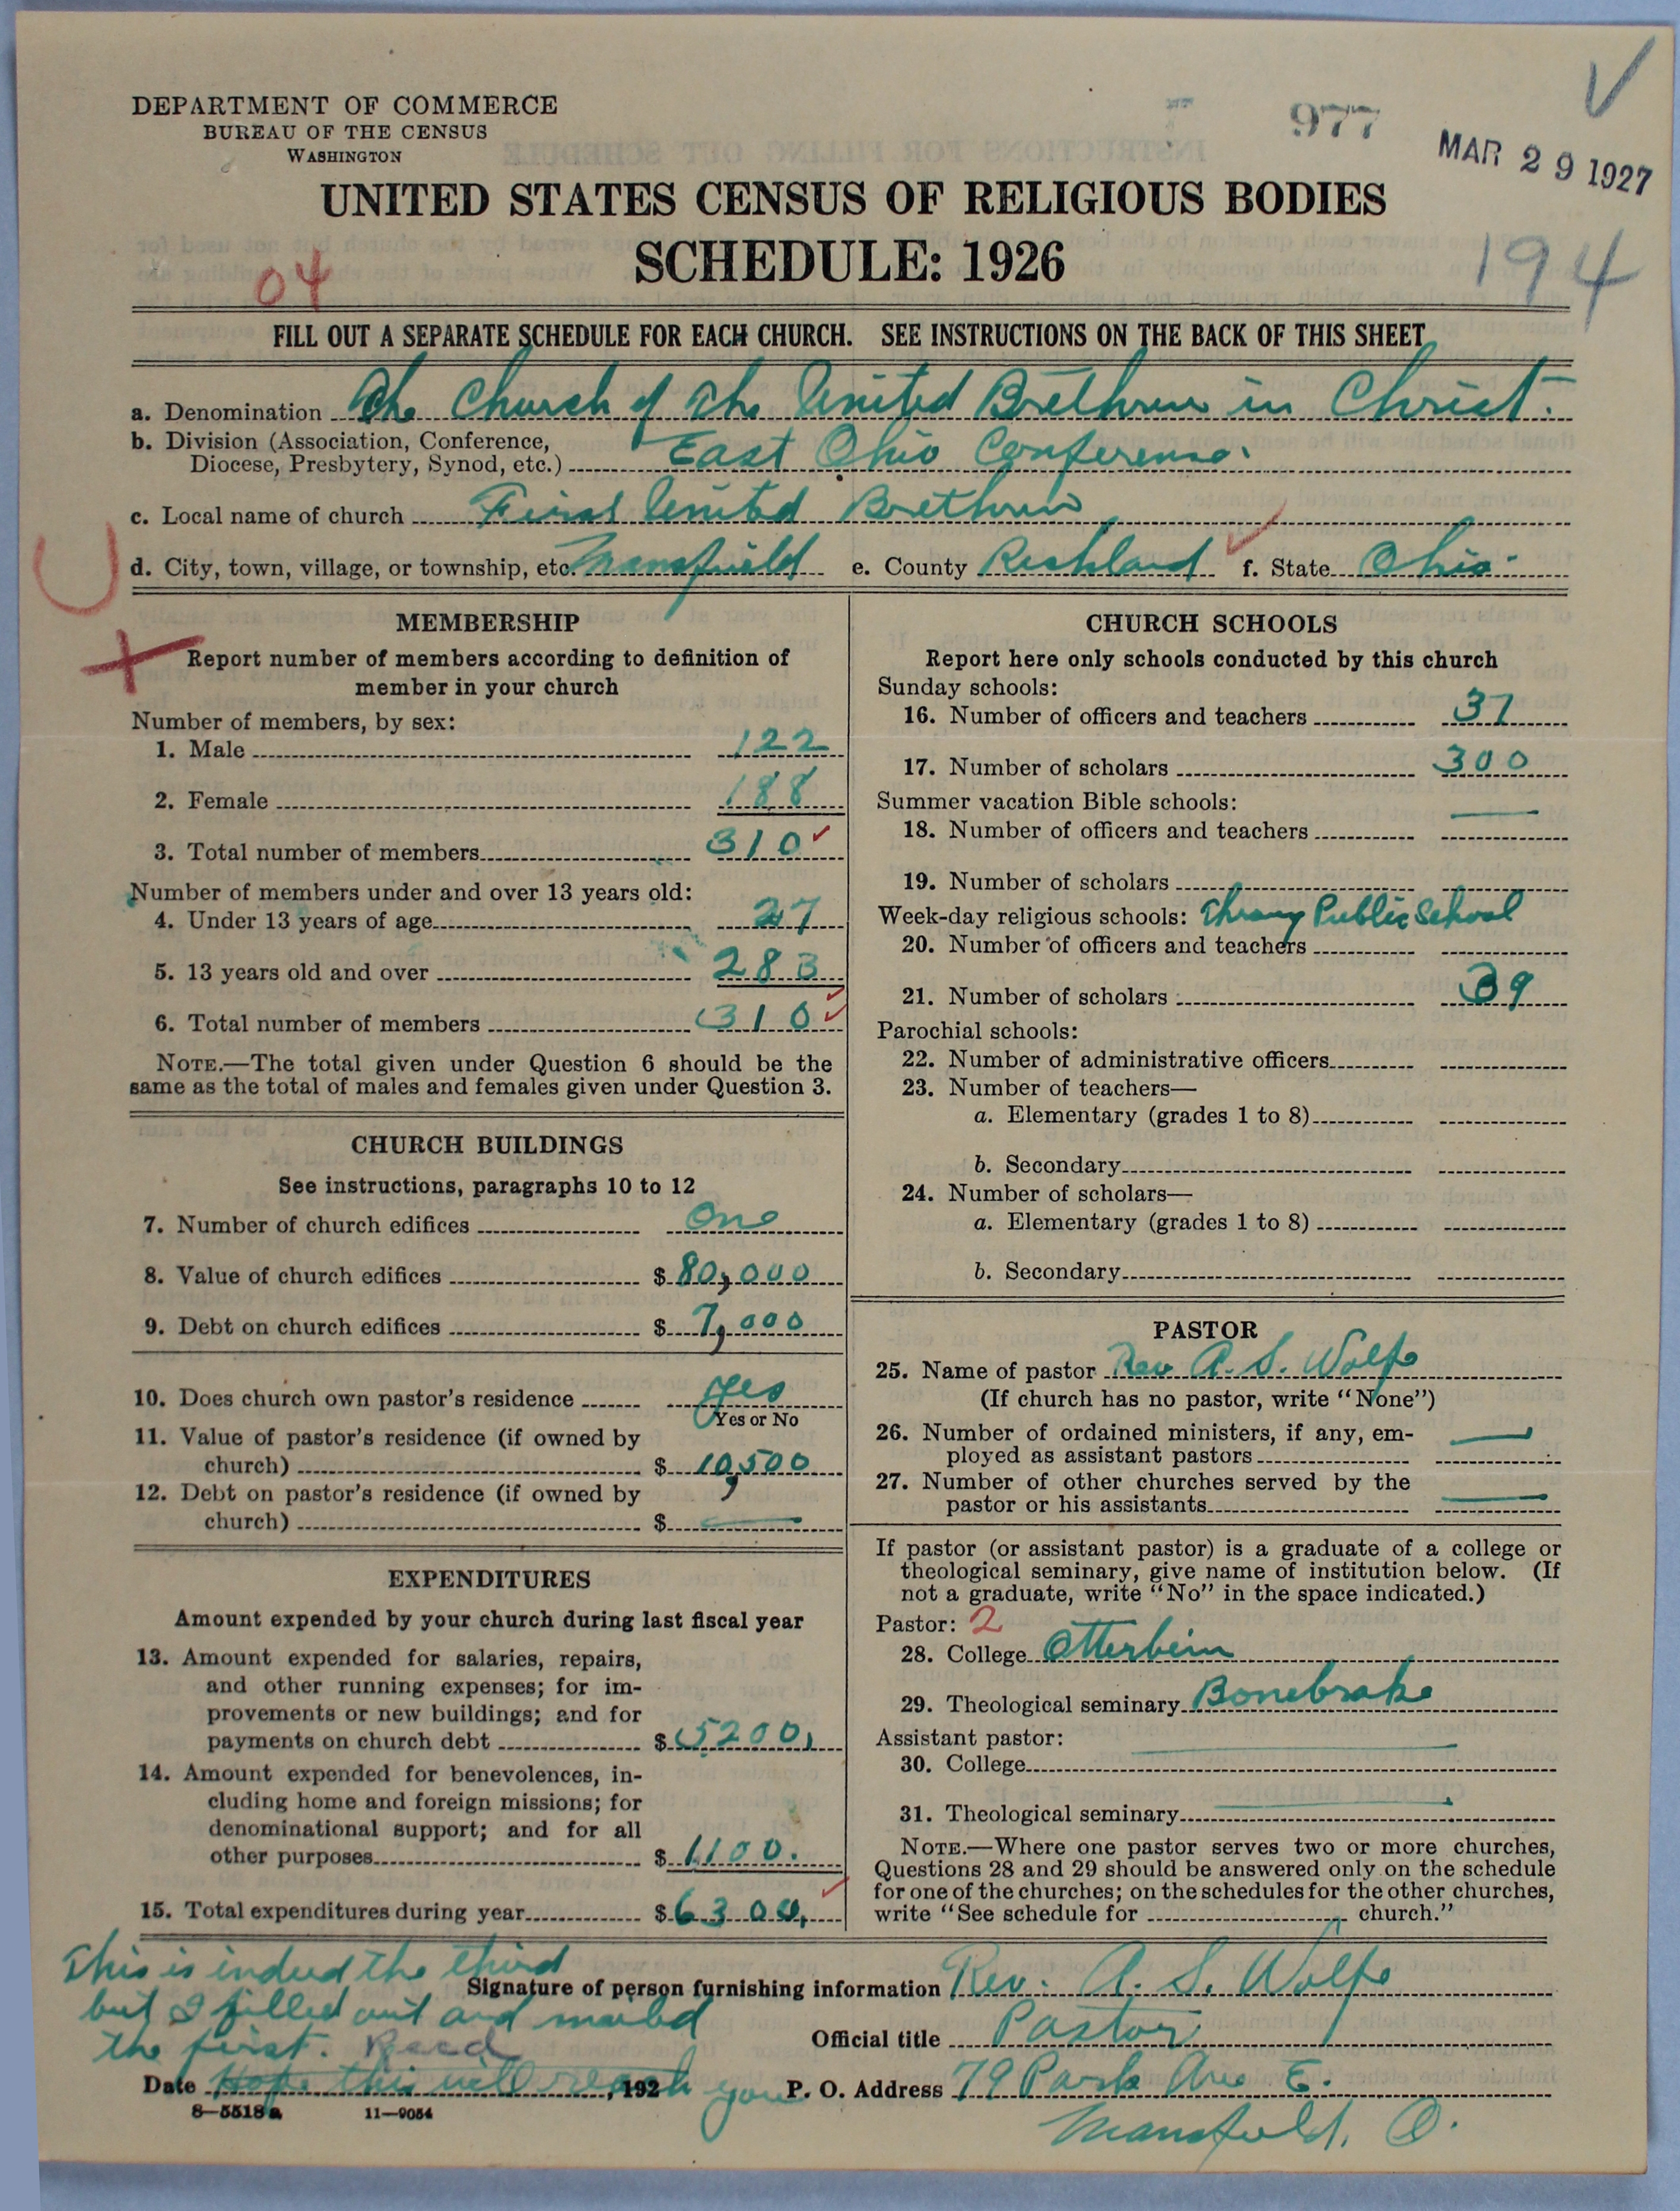 DEPARTMENT OF COMMERCE
BUREAU OF THE CENSUS
WASHINGTON
977
MAR 29 1927
UNITED STATES CENSUS OF RELIGIOUS BODIES
SCHEDULE: 1926
04
194
FILL OUT A SEPARATE SCHEDULE FOR EACH CHURCH. SEE INSTRUCTIONS ON THE BACK OF THIS SHEET
a. Denomination The Church of The United Brethren in Christ.
b. Division (Association, Conference,
Diocese, Presbytery, Synod, etc.) East Ohio Conference.
c. Local name of church First United Brethren
d. City, town, village, or township, etc. Mansfield e. County Richland f. State Ohio
MEMBERSHIP
Report number of members according to definition of
member in your church
Number of members, by sex:
1. Male 122
2. Female 188
3. Total number of members 310
Number of members under and over 13 years old:
4. Under 13 years of age 27
5. 13 years old and over 283
6. Total number of members 310
NOTE.—The total given under Question 6 should be the
same as the total of males and females given under Question 3.
CHURCH BUILDINGS
See instructions, paragraphs 10 to 12
7. Number of church edifices One
8. Value of church edifices $ 80,000
9. Debt on church edifices $ 7,000
10. Does church own pastor's residence yes
Yes or No
11. Value of pastor's residence (if owned by
church) $ 10,500
12. Debt on pastor's residence (if owned by
church) $ —
EXPENDITURES
Amount expended by your church during last fiscal year
13. Amount expended for salaries, repairs,
and other running expenses; for im-
provements or new buildings; and for
payments on church debt $ 5200,
14. Amount expended for benevolences, in-
cluding home and foreign missions; for
denominational support; and for all
other purposes $ 1100.
15. Total expenditures during year $ 6300,
CHURCH SCHOOLS
Report here only schools conducted by this church
Sunday schools:
16. Number of officers and teachers 37
17. Number of scholars 300
Summer vacation Bible schools:
18. Number of officers and teachers —
19. Number of scholars
Week-day religious schools: Public School
20. Number of officers and teachers
21. Number of scholars 39
Parochial schools:
22. Number of administrative officers
23. Number of teachers—
a. Elementary (grades 1 to 8)
b. Secondary
24. Number of scholars—
a. Elementary (grades 1 to 8)
b. Secondary
PASTOR
25. Name of pastor Rev A. S. Wolfe
(If church has no pastor, write "None")
26. Number of ordained ministers, if any, em-
ployed as assistant pastors —
27. Number of other churches served by the
pastor or his assistants —
If pastor (or assistant pastor) is a graduate of a college or
theological seminary, give name of institution below. (If
not a graduate, write "No" in the space indicated.)
Pastor: 2
28. College Otterbein
29. Theological seminary Bonebrake
Assistant pastor:
30. College —
31. Theological seminary —
NOTE.—Where one pastor serves two or more churches,
Questions 28 and 29 should be answered only on the schedule
for one of the churches; on the schedules for the other churches,
write "See schedule for church."
This is indeed the third
but I filled out and mailed
the first. Recd
Signature of person furnishing information Rev. A. S. Wolfe
Official title Pastor
Date Hope this will reach you , 192 P. O. Address 79 Park Ave E.
Mansfield, O.
8—5518a 11—9054